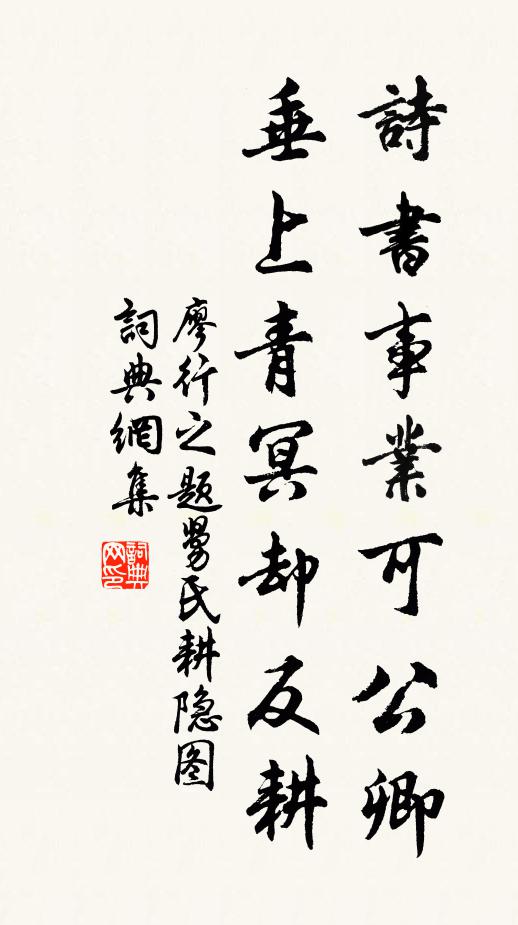 詩書事業可公卿
垂上青冥却反耕
廖行之題勇氏耕隐图
詞典網集
詞典网印